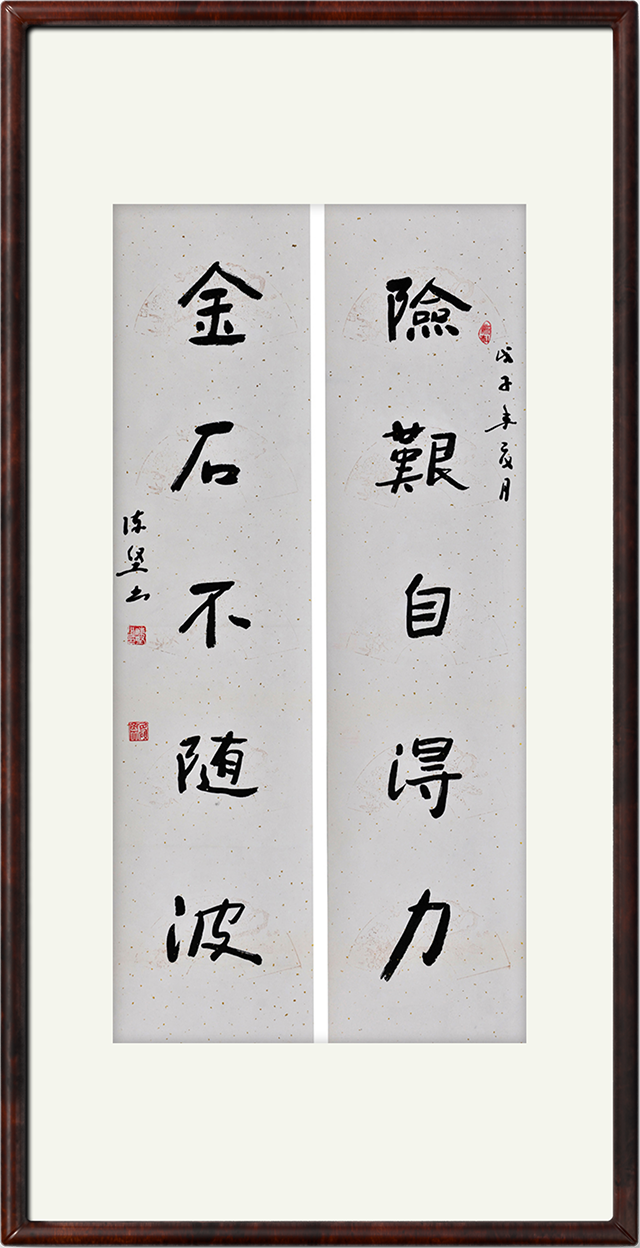 戊子年夏月
險艱自得力
金石不随波
陈坚书